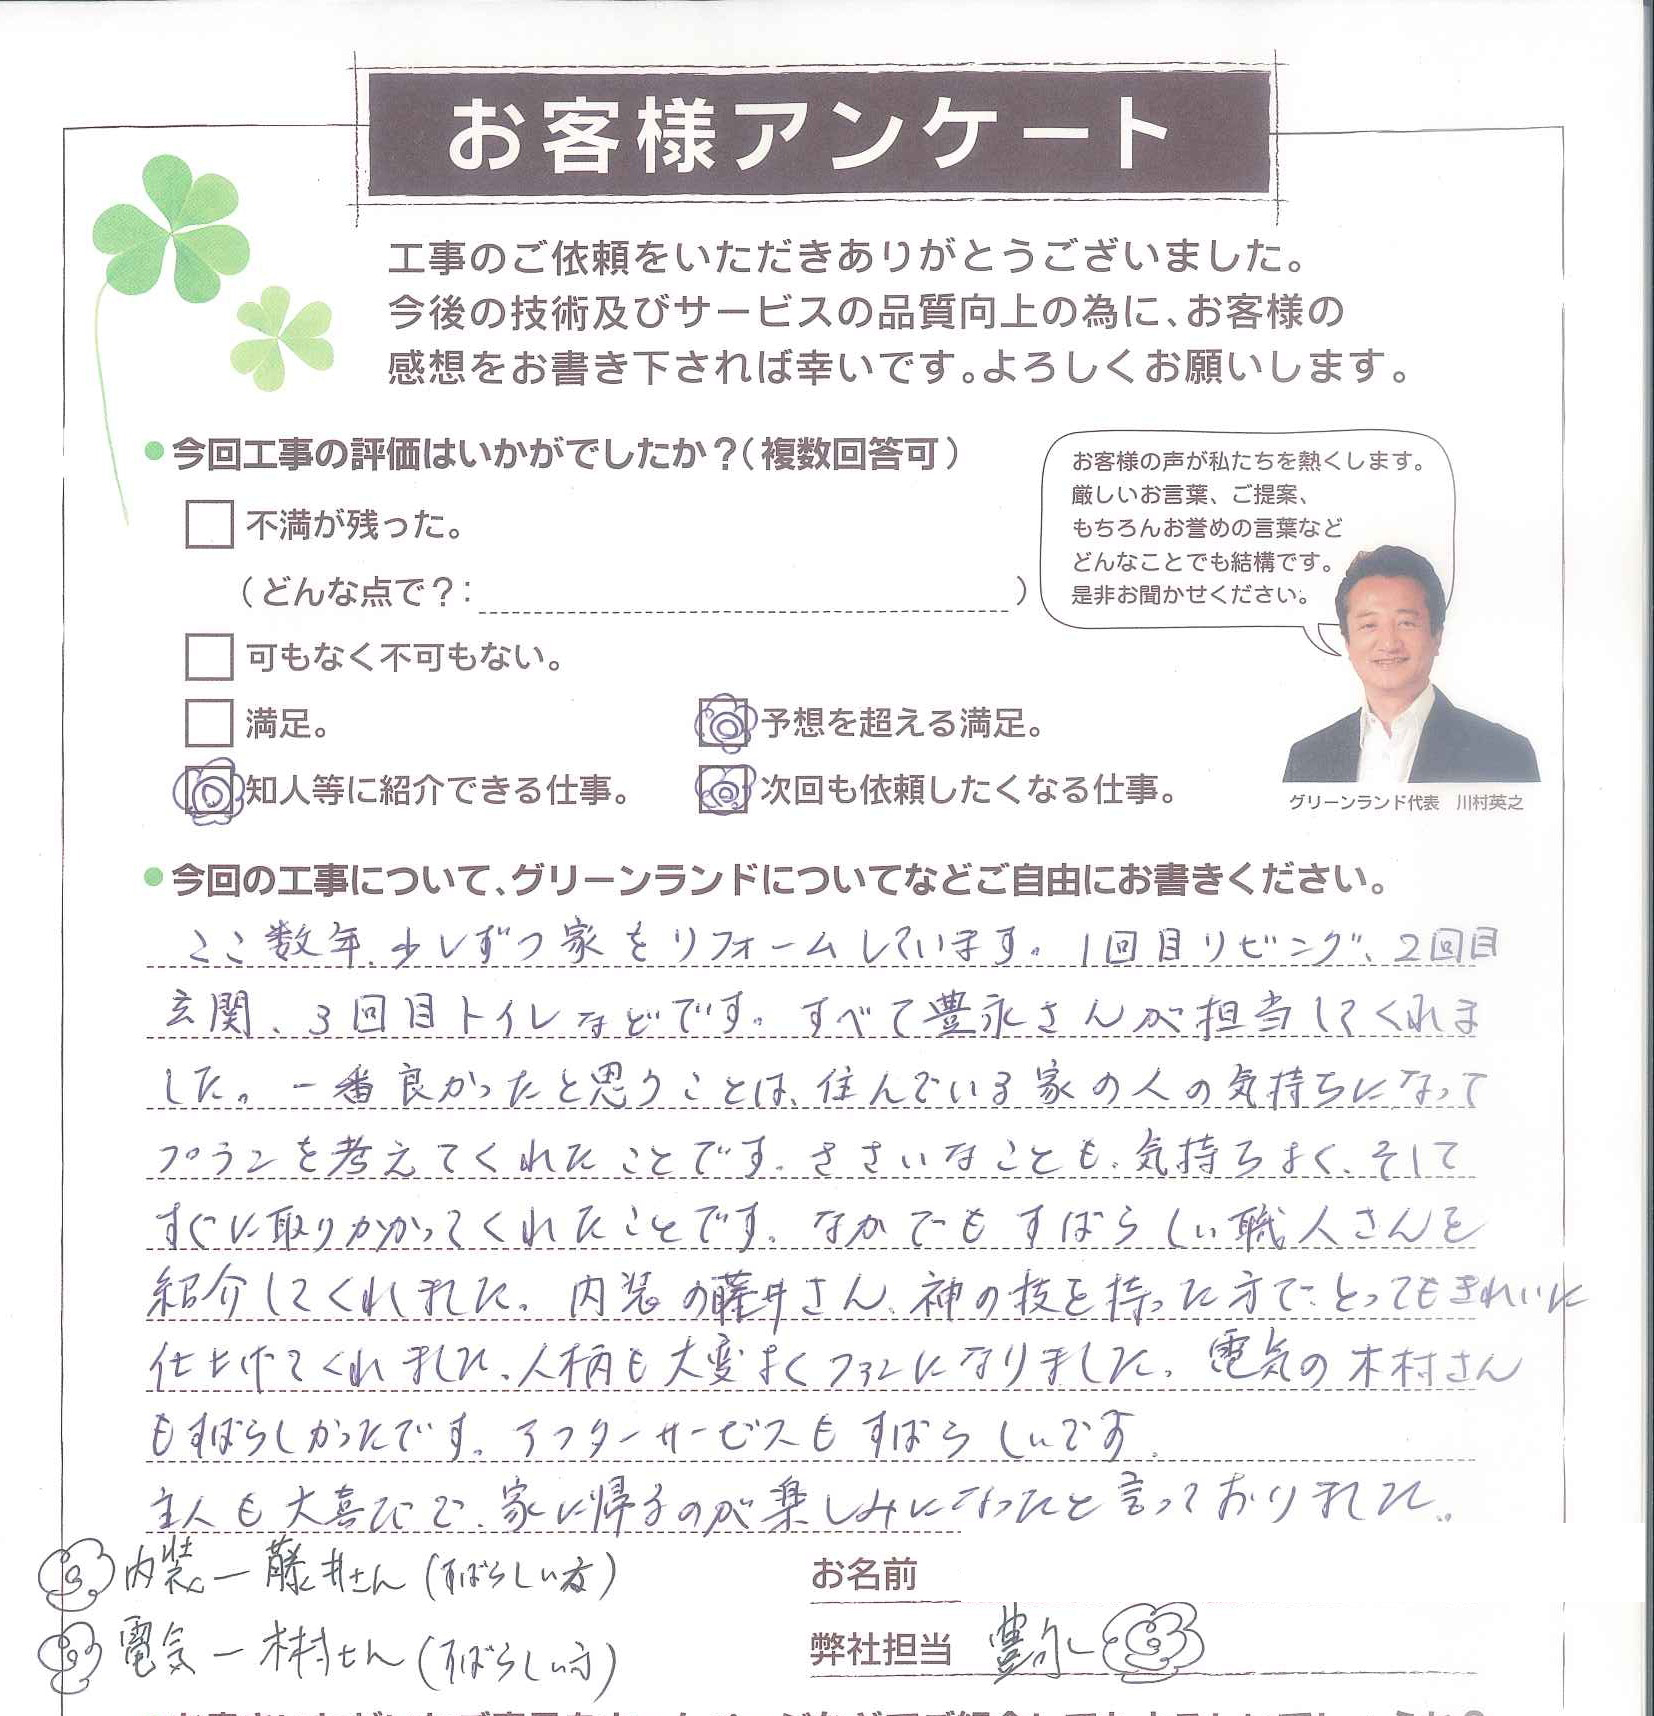 お客様アンケート
工事のご依頼をいただきありがとうございました。
今後の技術及びサービスの品質向上の為に、お客様の
感想をお書き下されば幸いです。よろしくお願いします。
今回工事の評価はいかがでしたか？（複数回答可）
不満が残った。
（どんな点で？：　）
可もなく不可もない。
満足。
予想を超える満足。
知人等に紹介できる仕事。
次回も依頼したくなる仕事。
お客様の声が私たちを熱くします。
厳しいお言葉、ご提案、
もちろんお誉めの言葉など
どんなことでも結構です。
是非お聞かせください。
グリーンランド代表　川村英之
今回の工事について、グリーンランドについてなどご自由にお書きください。
ここ数年、少しずつ家をリフォームしています。1回目リビング、2回目
玄関、3回目トイレなどです。すべて豊永さんが担当してくれま
した。一番良かったと思うことは、住んでいる家の人の気持ちになって
プランを考えてくれたことです。ささいなことも、気持ちよく、そして
すぐに取りかかってくれたことです。なかでもすばらしい職人さんを
紹介してくれました。内装の藤井さん、神の技を持った方で、とってもきれいに
仕上げてくれました。人柄も大変よくファンになりました。電気の木村さん
もすばらしかったです。アフターサービスもすばらしいです。
主人も大喜びで、家に帰るのが楽しみになったと言っておりました。
内装ー藤井さん（すばらしい方）
電気ー木村さん（すばらしい方）
お名前
弊社担当 豊永